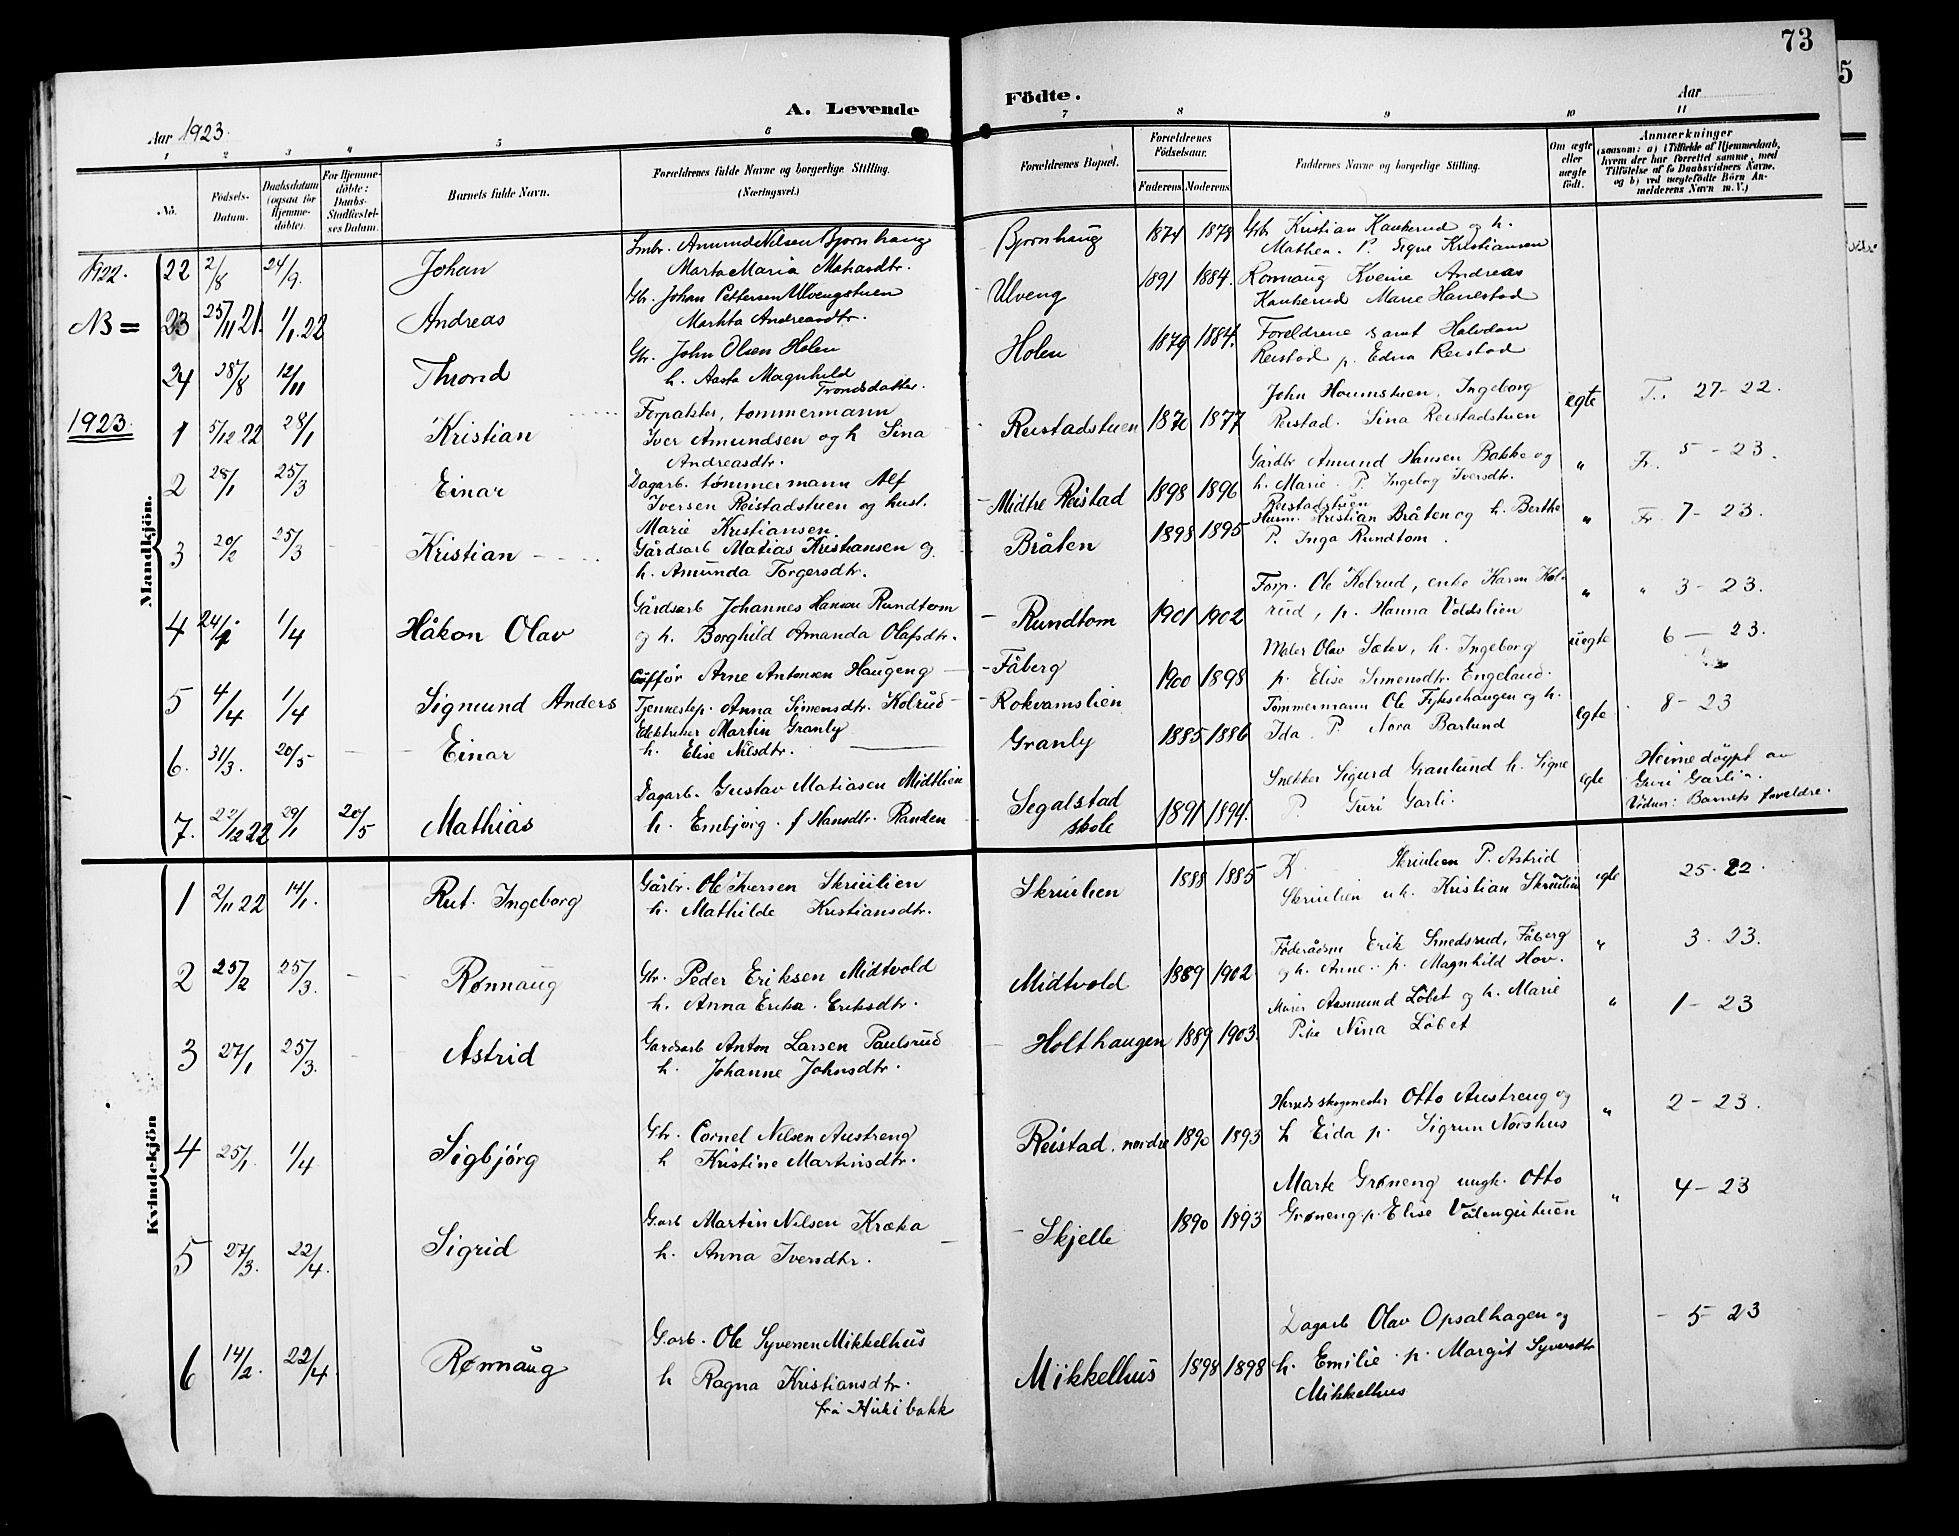 73
5
A. Levende Födte.
Aar 1923.
Aar
1 2 3 4 5 6 7 8 9 10 11
No.
Födsels-Datum.
Daabsdatum (ogsaa for Hjemme-döbte).
For Hjemme-döbte: Daabs-Stadfæstel-ses Datum.
Barnets fulde Navn.
Forældrenes fulde Navne og borgerlige Stilling.
(Næringsvei.)
Forældrenes Bopæl.
Forældrenes Födselsaar.
Faderens Moderens
Faddernes Navne og borgerlige Stilling.
Om ægte eller uægte födt.
Anmærkninger
(saasom: a) i Tilfælde af Hjemmedaab, hvem der har forrettet samme, med Tilföielse af to Daabsvidners Navne, og b) ved uægtefödte Börn An-melderens Navn m. V.)
Mandkjön.
1922. 22 2/8 24/9. Johan
Smbr. Amund Nilsen Bjørnhaug
Marta Maria Matiasdtr.
Bjørnhaug 1874 1878
Gbr Kristian Kankerud og h.
Mathea. P. Signe Kristiansen
NB = 23 25/11 21. 1/1. 22 Andreas
Gbr. Johan Pettersen Ulvengstuen
Martha Andreasdtr.
Ulveng 1891 1884.
Rønnaug Kveine Andreas
Kankerud Marie Hanestad
24 28/8 12/11 Thrond
Gbr. John Olsen Holen
h. Aasta Magnhild
Trondsdatter.
Holen 1879 1884.
Foreldrene samt Halvdan
Reistad p. Edna Reistad
1923. 1 5/12 22 28/1 Kristian
Forpakter, tømmermann
Iver Amundsen og h Sina
Andreasdtr.
Reistadstuen 1870 1877
John Housmstuen, Ingeborg
Reistad. Sina Reistadstuen
egte 27-22.
2 28/1 25/3 Einar
Dagarb. tømmermann Alf
Iversen Reistadstuen og hust.
Marie Kristiansen.
Midtre Reistad 1898 1896
Gårdbr Amund Hansen Bakke og
h. Marie. P. Ingebog Iversdtr.
Reistadstuen
" Fr. 5 - 23.
3 20/2 25/3 Kristian
Gårdsarb Matias Kristiansen og
h. Amunda Torgersdtr.
Bråten 1898 1895
Husm. Kristian Bråten og h. Berthe
P. Inga Rundtom.
" Fr. 7 - 23.
4 24/1 1/4 Håkon Olav
Gårdsarb Johannes Hansen Rundtom
og h. Borghild Amanda Olafsdtr.
Rundtom 1901 1902
Forp. Ole Kolrud, enke Karen Kol-
rud, p. Hanna Voldslien
" " 3 - 23.
5 4/4 1/4 Sigmund Anders
Arne Antonsen Haugeng
Tjenestep. Anna Simensdtr. Kolrud
Fåberg
Rokvamslien 1900 1898
Maler Olav Sæter, h. Ingeborg
p. Elise Simensdtr. Engeland.
uegte 6 - 23.
6. 31/3. 20/5 Einar
Elektriker Martin Granly
h. Elise Nilsdtr.
Granly 1885 1886
Tømmermann Ole Fykschaugen og h.
Ida. P. Nora Barlund
egte 8 - 23
7. 22/12 22 29/1 20/5 Mathias
Dagarb. Gustav Matiasen Midtlien
h. Embjørg. f Hansdtr. Randen
Segalstad
skole 1891 1894.
Snekker Sigurd Granlund h. Signe
P. Guri Garli.
egte
Heimedøypt av
Guri Garli.
Vidner: Barnets foreldre.
Kvindekjön
1 2/11 22 14/1. Rut. Ingeborg
Gårbr. Ole Iversen Skruilien
h. Mathilde Kristiansdtr.
Skruilien 1888 1885
K Skruilien P. Astrid
Skruilien u.k. Kristian Skruilien
egte 25-22.
2 25/2 25/3. Rønnaug
Gbr. Peder Eriksen Midtvold
h. Anna Erika. Eriksdtr.
Midtvold 1889 1902
Føderådsm Erik Smedsrud, Fåberg
og h. Anne. p. Magnhild Hov.
" 3. 23.
3 27/1 25/3. Astrid
Gardsarb Anton Larsen Paulsrud
h. Johanne Johnsdtr.
Holthaugen 1889 1903.
Murer Aamund Løbet og h. Marie
Pike Nina Løbet
" 1 - 23
4 25/1. 1/4 Sigbjörg
Gbr. Cornel Nilsen Austreng
h Kristine Martinsdtr.
Reistad. nordre 1890 1893
Herredsskogmester Otto Austreng og
h Eida p. Sigrun Norshus
" 2 - 23.
5 27/3. 22/4. Sigrid
G.arb Martin Nilsen Kræka
h. Anna Iversdtr.
Skjelle 1890 1893
Marte Grøneng ungk. Otto
Grøneng. p. Elise Vålengstuen
" 4 - 23
6 14/2. 22/4 Rønnaug
G.arb. Ole Syversen Mikkelhus
h Ragna Kristiansdtr.
fra
Mikkelhus 1898 1898
Dagarb Olav Opsalhagen og
h. Emilie. p. Margit Syversdtr
Mikkelhus
5 - 23